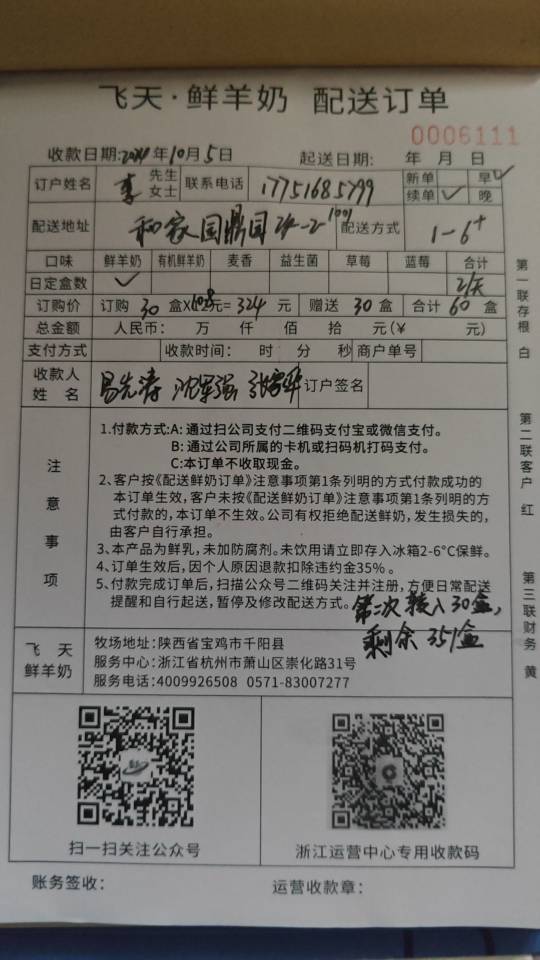 飞天·鲜羊奶 配送订单
0006111
收款日期:2024年10月5日 起送日期: 年 月 日
订户姓名 李 先生 女士 联系电话 17751685799 新单 早✓ 续单✓ 晚
配送地址 和家园鼎园24-2-1001 配送方式 1-6+
口味 鲜羊奶 有机鲜羊奶 麦香 益生菌 草莓 蓝莓 合计
日定盒数 ✓ 2/天
订购价 订购 30 盒×10.8元=324元 赠送 30 盒 合计 60 盒
总金额 人民币: 万 仟 佰 拾 元(¥ 元)
支付方式 收款时间: 时 分 秒 商户单号
收款人姓名 易先涛 沈军强 订户签名
注意事项
1.付款方式:A:通过扫公司支付二维码支付宝或微信支付。
B:通过公司所属的卡机或扫码机打码支付。
C:本订单不收取现金。
2、客户按《配送鲜奶订单》注意事项第1条列明的方式付款成功的
本订单生效,客户未按《配送鲜奶订单》注意事项第1条列明的方
式付款的,本订单不生效。公司有权拒绝配送鲜奶,发生损失的,
由客户自行承担。
3、本产品为鲜乳,未加防腐剂。未饮用请立即存入冰箱2-6°C保鲜。
4、订单生效后,因个人原因退款扣除违约金35%。
5、付款完成订单后,扫描公众号二维码关注并注册,方便日常配送
提醒和自行起送,暂停及修改配送方式。
第二次转入30盒,
剩余351盒
飞天鲜羊奶
牧场地址:陕西省宝鸡市千阳县
服务中心:浙江省杭州市萧山区崇化路31号
服务电话:4009926508 0571-83007277
扫一扫关注公众号 浙江运营中心专用收款码
账务签收: 运营收款章:
第一联存根 白
第二联客户 红
第三联财务 黄